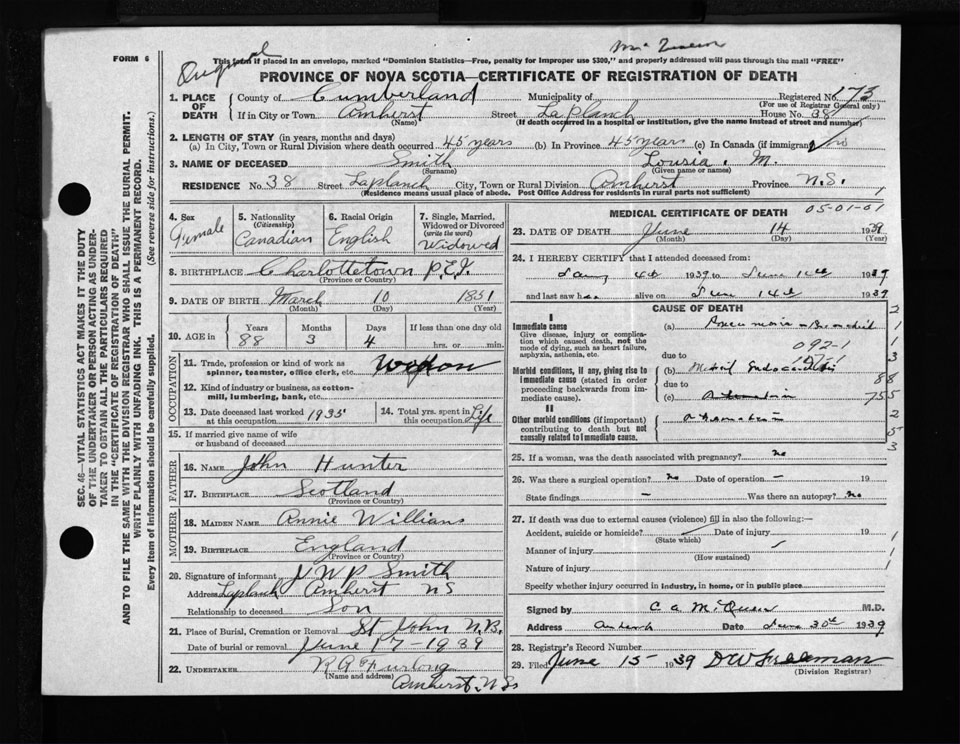 FORM 6
Original
This form if placed in an envelope, marked "Dominion Statistics—Free, penalty for improper use $300," and properly addressed will pass through the mail "FREE"
PROVINCE OF NOVA SCOTIA—CERTIFICATE OF REGISTRATION OF DEATH
1. PLACE OF DEATH
County of Cumberland Municipality of Registered No. 173
(For use of Registrar General only)
If in City or Town Amherst Street LaPlanch House No. 38
(Name) (If death occurred in a hospital or institution, give the name instead of street and number)
2. LENGTH OF STAY (in years, months and days)
(a) In City, Town or Rural Division where death occurred 45 years (b) In Province 45 years (c) In Canada (if immigrant)
3. NAME OF DECEASED Smith Louria. M.
(Surname) (Given name or names)
RESIDENCE No. 38 Street Laplanch City, Town or Rural Division Amherst Province N.S.
(Residence means usual place of abode. Post Office Address for residents in rural parts not sufficient)
4. Sex
Female
5. Nationality
(Citizenship)
Canadian
6. Racial Origin
English
7. Single, Married, Widowed or Divorced
(write the word)
Widowed
8. BIRTHPLACE Charlottetown P.E.I.
(Province or Country)
9. DATE OF BIRTH March 10 1851
(Month) (Day) (Year)
10. AGE in Years Months Days If less than one day old
88 3 4 hrs. or min.
OCCUPATION
11. Trade, profession or kind of work as spinner, teamster, office clerk, etc.
12. Kind of industry or business, as cotton-mill, lumbering, bank, etc.
13. Date deceased last worked at this occupation 1935
14. Total yrs. spent in this occupation Life
15. If married give name of wife or husband of deceased
FATHER
16. NAME John Hunter
17. BIRTHPLACE Scotland
(Province or Country)
MOTHER
18. MAIDEN NAME Annie Williams
19. BIRTHPLACE England
(Province or Country)
20. Signature of informant J W P Smith
Address Laplanch Amherst NS
Relationship to deceased Son
21. Place of Burial, Cremation or Removal St John N.B.
Date of burial or removal June 17-1939
22. UNDERTAKER R A Furlong
(Name and address)
Amherst. N.S.
MEDICAL CERTIFICATE OF DEATH
05-01-01
23. DATE OF DEATH June 14 1939
(Month) (Day) (Year)
24. I HEREBY CERTIFY that I attended deceased from:
4th 1939 to June 14th 1939
and last saw her alive on June 14th 1939
CAUSE OF DEATH
I
Immediate cause
Give disease, injury or complication which caused death, not the mode of dying, such as heart failure, asphyxia, asthenia, etc.
(a) Pneumonia - Bronchial
092-1
due to
Morbid conditions, if any, giving rise to immediate cause (stated in order proceeding backwards from immediate cause).
(b) Mitral Endocarditis
due to
(c)
II
Other morbid conditions (if important) contributing to death but not causally related to immediate cause.
25. If a woman, was the death associated with pregnancy? no
26. Was there a surgical operation? no Date of operation - 19
State findings - Was there an autopsy? no
27. If death was due to external causes (violence) fill in also the following:—
Accident, suicide or homicide? Date of injury 19
(State which)
Manner of injury
(How sustained)
Nature of injury
Specify whether injury occurred in industry, in home, or in public place
Signed by C A McQueen M.D.
Address Amherst Date June 30th 1939
28. Registrar's Record Number
29. Filed June 15 1939 D W Freeman
(Division Registrar)
SEC. 46—VITAL STATISTICS ACT MAKES IT THE DUTY
OF THE UNDERTAKER OR PERSON ACTING AS UNDER-
TAKER TO OBTAIN ALL THE PARTICULARS REQUIRED
IN THE "CERTIFICATE OF REGISTRATION OF DEATH"
AND TO FILE THE SAME WITH THE DIVISION REGISTRAR WHO SHALL ISSUE THE BURIAL PERMIT.
WRITE PLAINLY WITH UNFADING INK. THIS IS A PERMANENT RECORD.
Every item of information should be carefully supplied. (See reverse side for instructions.)